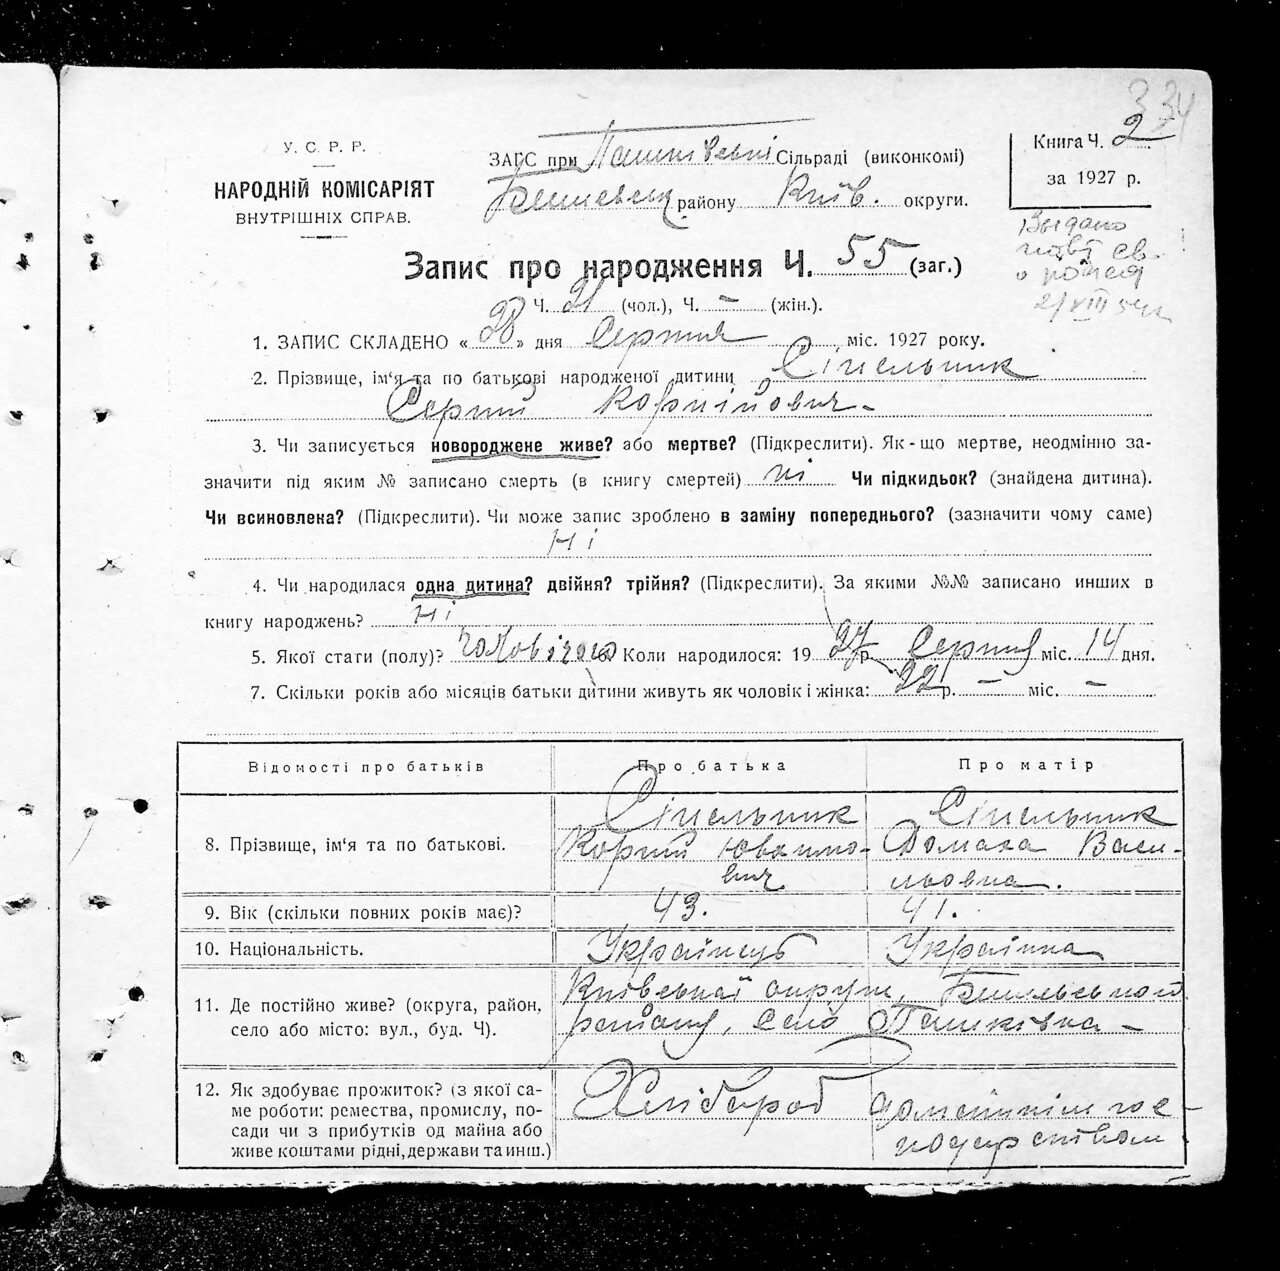 334
У. С. Р. Р.
НАРОДНІЙ КОМІСАРІЯТ
ВНУТРІШНІХ СПРАВ.
ЗАГС при Пашківській Сільраді (виконкомі)
району Київ. округи.
Книга Ч. 2
за 1927 р.
Выдано
повт св-
о рожд
21/VIII 54
Запис про народження Ч. 55 (заг.)
Ч. 21 (чол.), Ч. – (жін.).
1. ЗАПИС СКЛАДЕНО «28» дня Серпня міс. 1927 року.
2. Прізвище, ім‘я та по батькові народженої дитини Сінельник
Сергій Корнійович –
3. Чи записується новороджене живе? або мертве? (Підкреслити). Як-що мертве, неодмінно за-
значити під яким № записано смерть (в книгу смертей) ні Чи підкидьок? (знайдена дитина).
Чи всиновлена? (Підкреслити). Чи може запис зроблено в заміну попереднього? (зазначити чому саме)
ні
4. Чи народилася одна дитина? двійня? трійня? (Підкреслити). За якими №№ записано инших в
книгу народжень? ні
5. Якої стаги (полу)? чоловічого Коли народилося: 1927 р. Серпня міс. 14 дня.
7. Скільки років або місяців батьки дитини живуть як чоловік і жінка: 22 р. – міс. –
Відомості про батьків Про батька Про матір
8. Прізвище, ім‘я та по батькові. Сінельник Корній Ювхимо-вич Сінельник Домаха Васи-льовна.
9. Вік (скільки повних років має)? 43. 41.
10. Національність. Українець Українка
11. Де постійно живе? (округа, район,
село або місто: вул., буд. Ч).
Київської округи,
району, село Пашківка –
12. Як здобуває прожиток? (з якої са-
ме роботи: ремества, промислу, по-
сади чи з прибутків од майна або
живе коштами рідні, держави та инш.)
Хлібороб
домашнім гос-
подарством